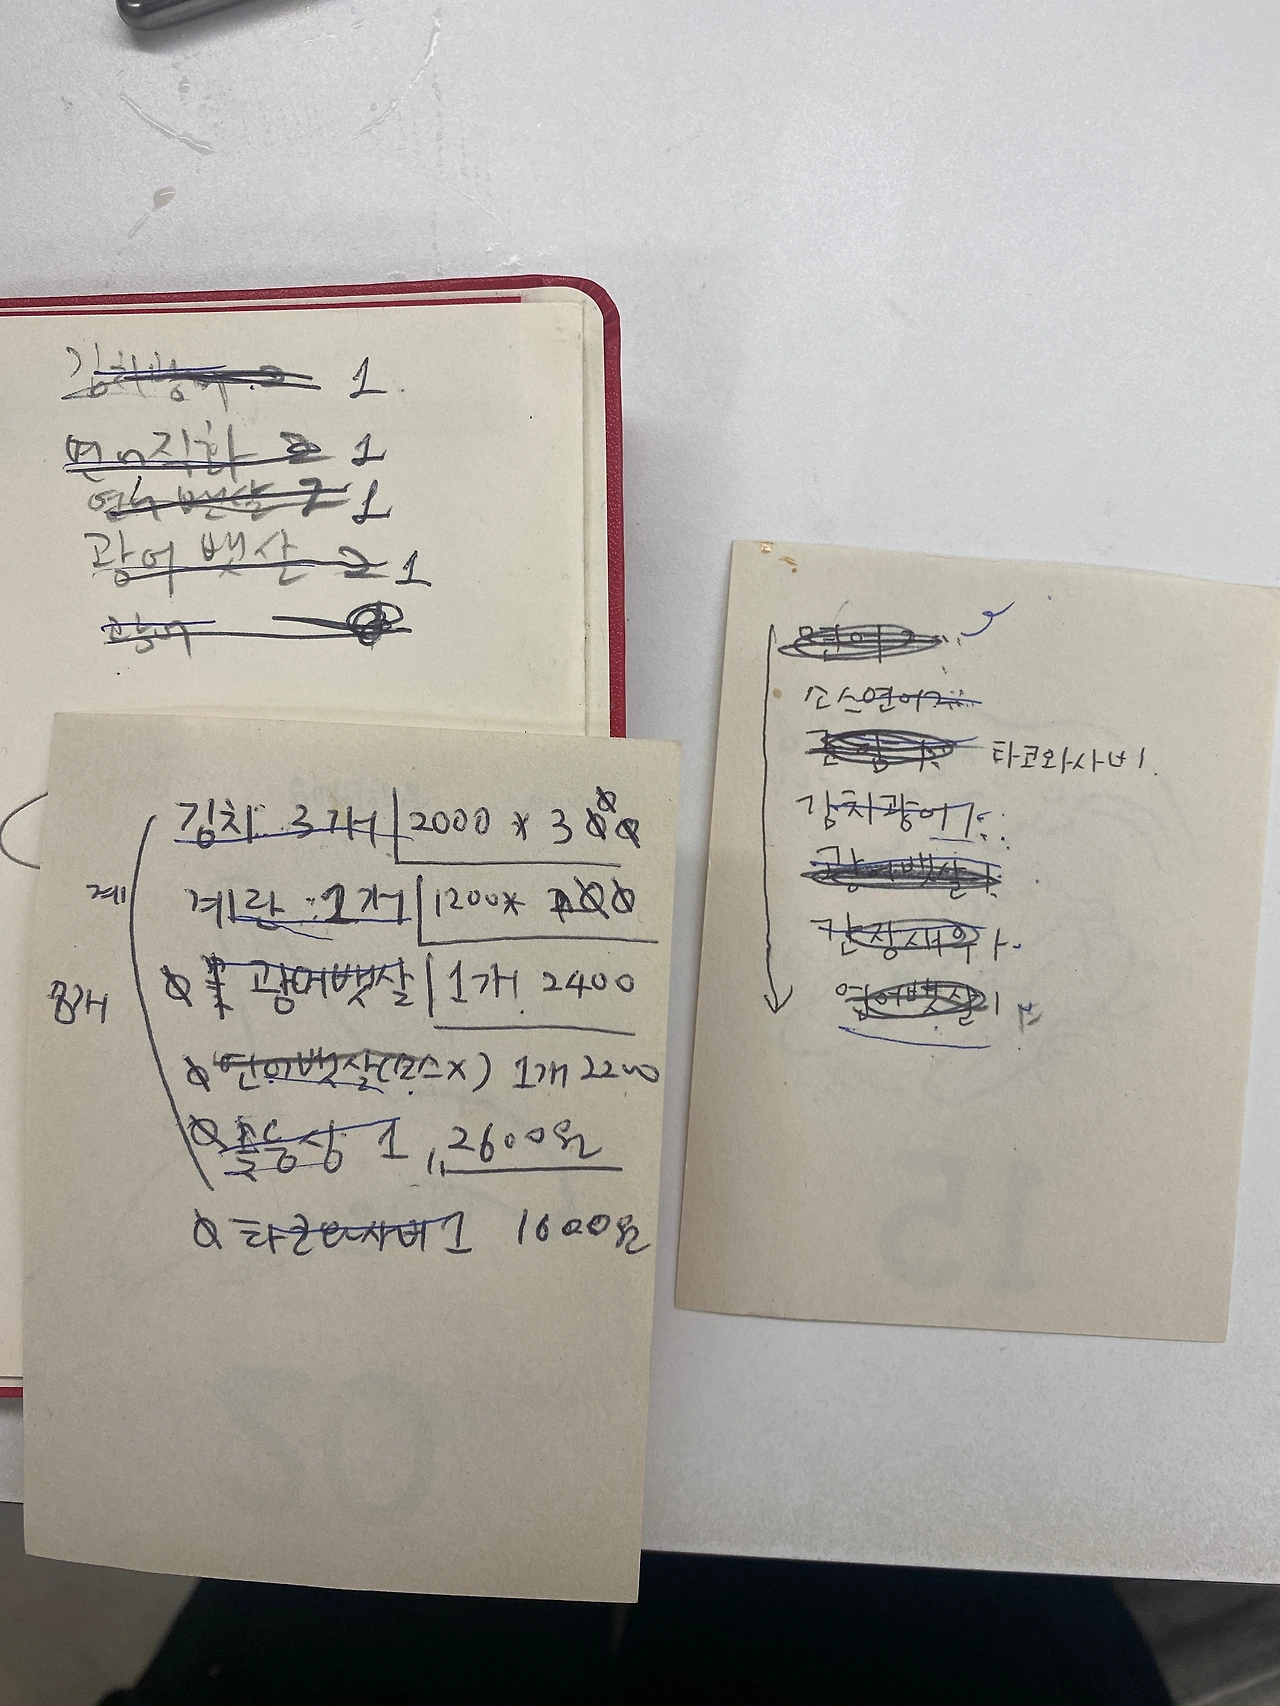 김치광어 2 1
연어직화 2 1
연어 뱃살 2 1
광어 뱃살 2 1
광어
김치 3개 2000 * 3
계란 1개 1200*
계
광어뱃살 1개 2400
8개
연어뱃살(소스x) 1개 2200
1 2600원
타코와사비 1 1600원
연어
소스연어 2
타코와사비
김치광어 1
광어뱃살 1
간장새우 1
연어뱃살 1